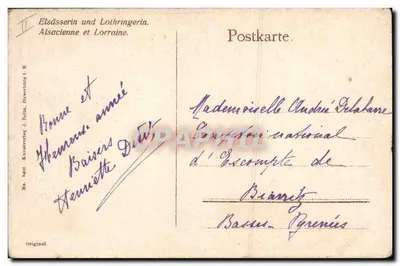 Elsässerin und Lothringerin.
Alsacienne et Lorraine.
Postkarte.
Bonne et
Heureuse année
Baisers
Henriette
Mademoiselle André Delabarre
Comptoir national
d'Escompte de
Biarritz
Basses-Pyrénées
Original.